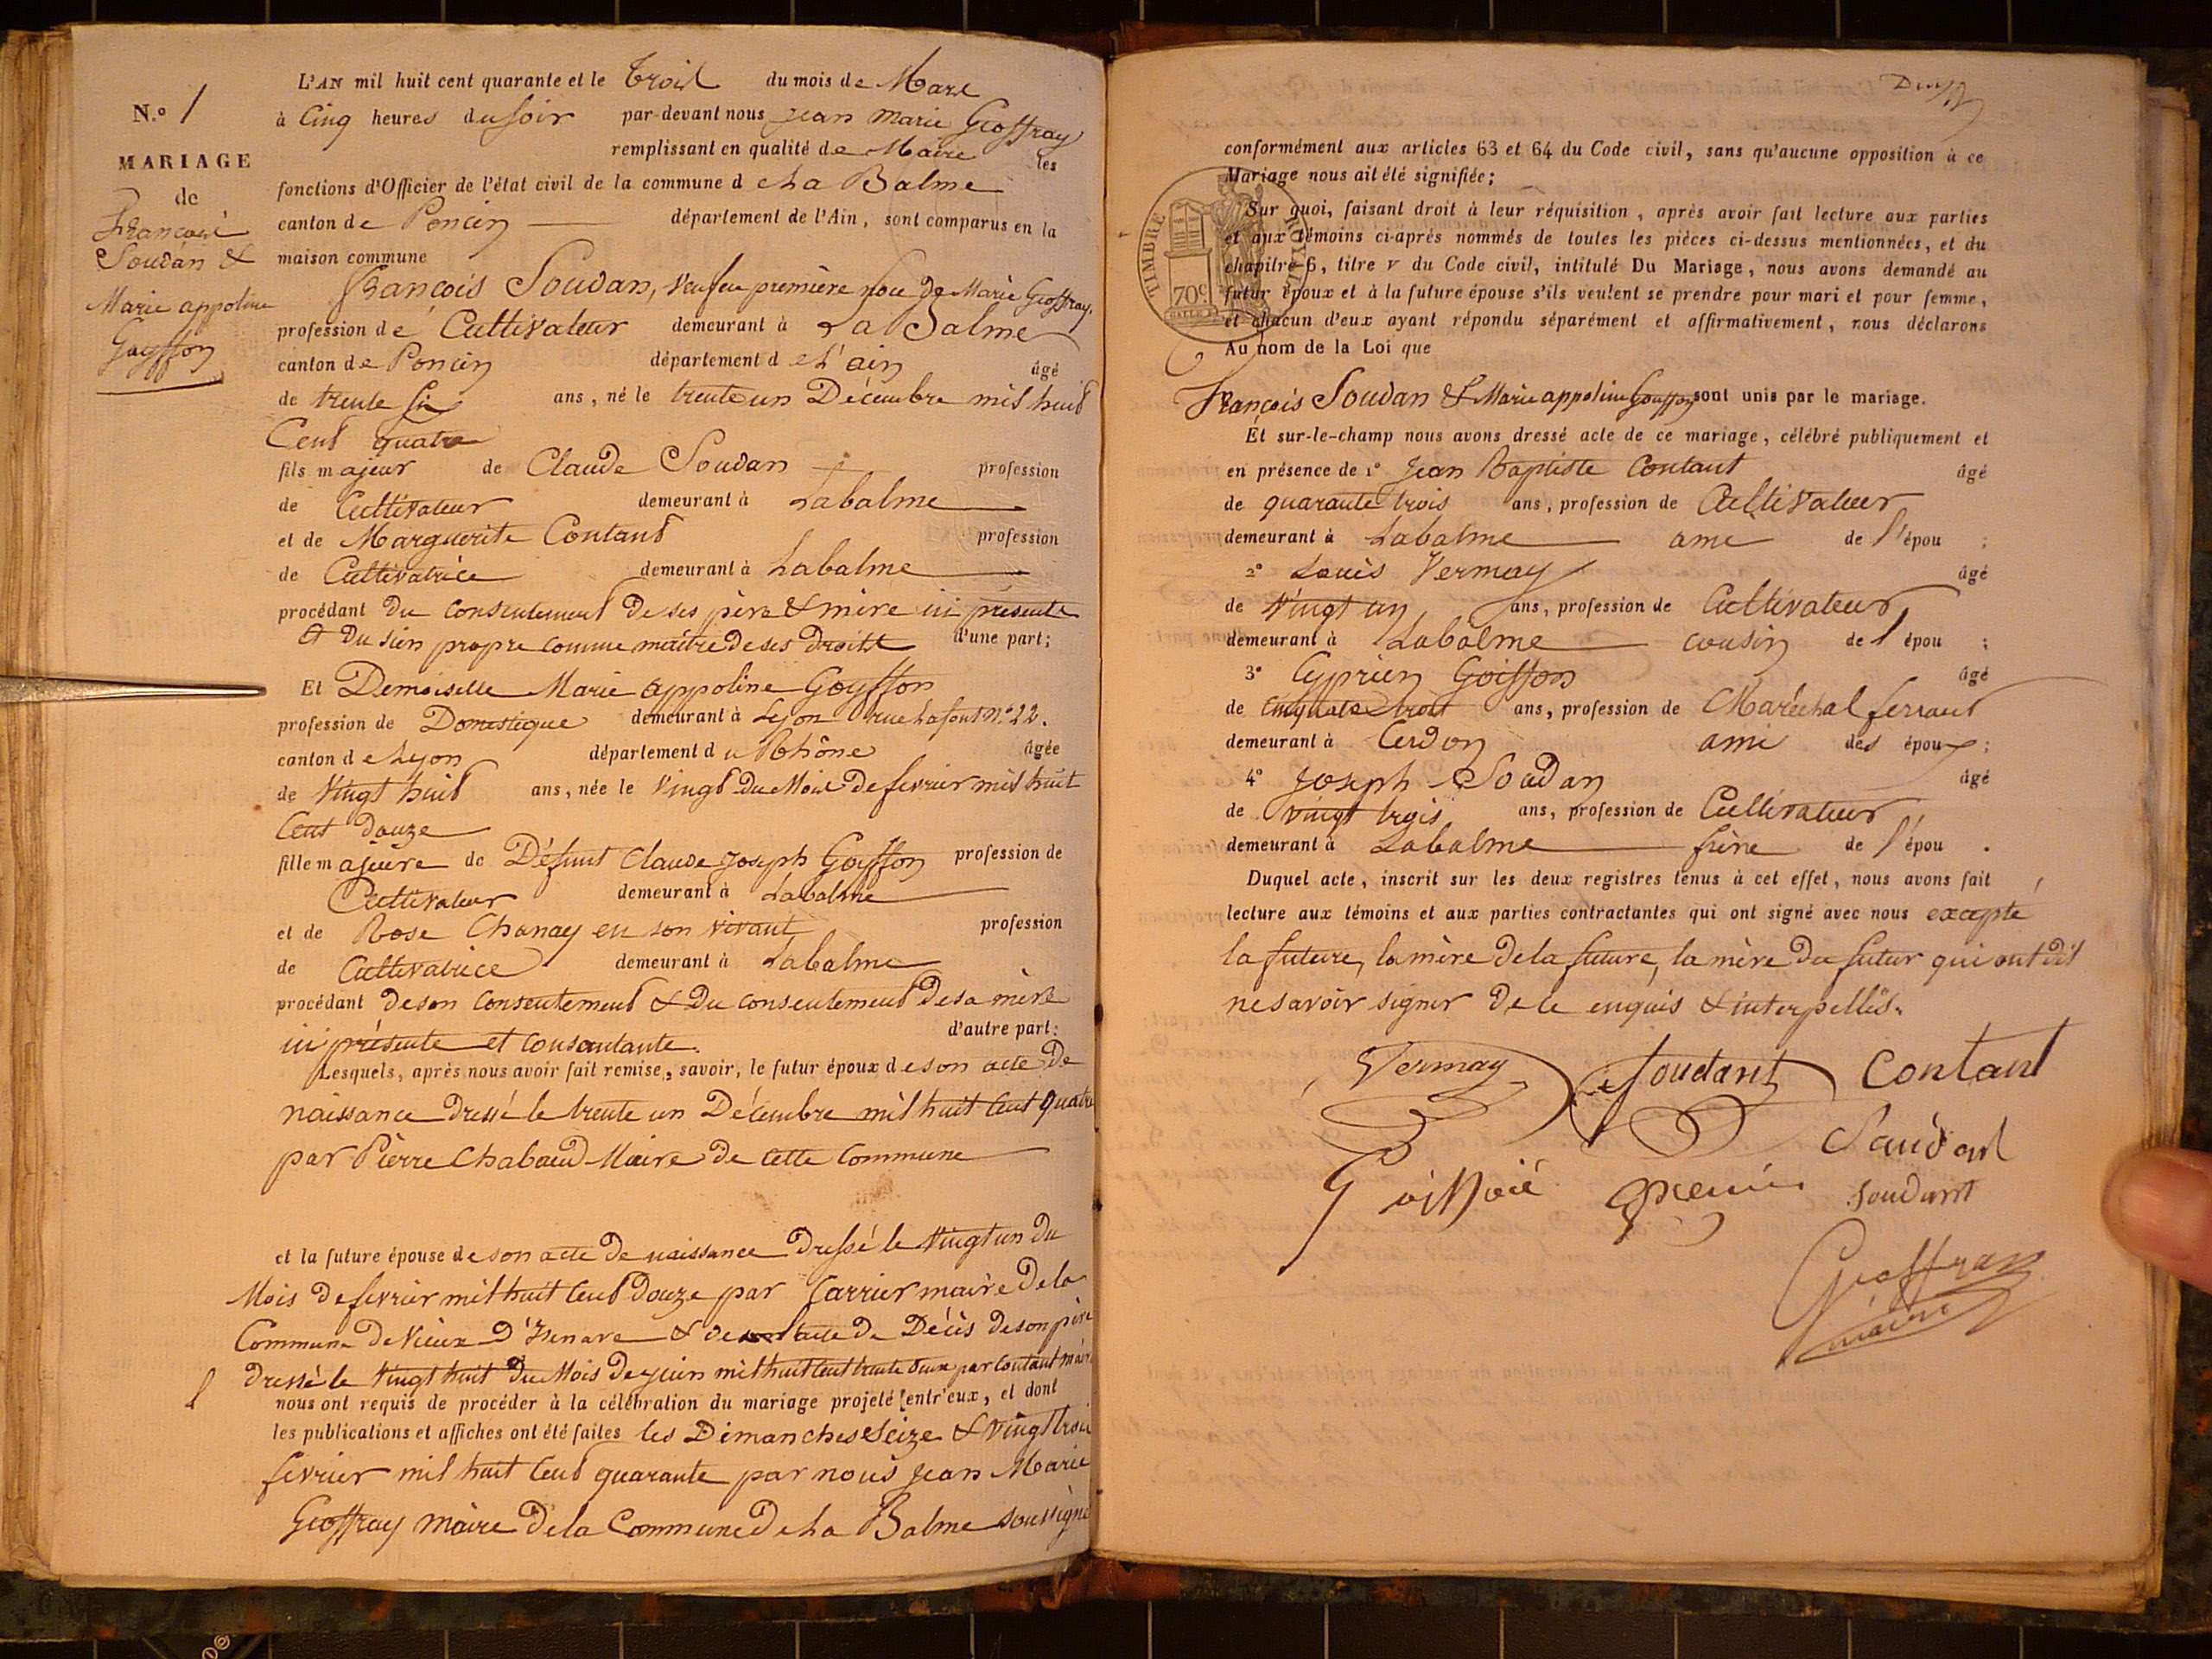 N.o 1
MARIAGE
de
François
Soudan &
Marie appoline
Goyffon
L'AN mil huit cent quarante et le trois du mois de Mars
à Cinq heures du soir par-devant nous jean marie Geoffray
remplissant en qualité de Maire les
fonctions d'Officier de l'état civil de la commune de La Balme
canton de Poncin département de l'Ain, sont comparus en la
maison commune
François Soudan, veuf en première noce de Marie Geoffray.
profession de Cultivateur demeurant à La Balme
canton de Poncin département de L'ain âgé
de trente six ans, né le trente un Décembre mil huit
Cent quatre
fils majeur de Claude Soudan profession
de Cultivateur demeurant à Labalme
et de Marguerite Contant profession
de Cultivatrice demeurant à Labalme
procédant du consentement de ses père & mère ici présents
& du sien propre comme maître de ses droits d'une part;
Et Demoiselle Marie appoline Goyffon
profession de Domestique demeurant à Lyon rue Lafont N.o 22.
canton de Lyon département du Rhône âgée
de vingt huit ans, née le vingt du Mois de fevrier mil huit
Cent douze
fille majeure de Défunt Claude Joseph Goyffon profession de
Cultivateur demeurant à Labalme
et de Rose Chanay en son vivant profession
de Cultivatrice demeurant à Labalme
procédant de son consentement & du consentement de sa mère
ici présente et consentante. d'autre part:
Lesquels, après nous avoir fait remise, savoir, le futur époux de son acte de
naissance dressé le trente un Décembre mil huit cent quatre
par Pierre Chabaud Maire de cette commune
et la future épouse de son acte de naissance dressé le vingt un du
Mois de fevrier mil huit cent douze par Carrier maire de la
Commune de Vieux D'Izenave & de acte de Décès de son père
dressé le vingt huit du Mois de juin mil huit cent trente deux par Contant maire
nous ont requis de procéder à la célébration du mariage projeté entr'eux, et dont
les publications et affiches ont été faites les Dimanches seize & vingt trois
fevrier mil huit cent quarante par nous Jean Marie
Geoffray maire de la Commune de La Balme soussigné
conformément aux articles 63 et 64 du Code civil, sans qu'aucune opposition à ce
Mariage nous ait été signifiée;
TIMBRE ROYAL
70c
Sur quoi, faisant droit à leur réquisition, après avoir fait lecture aux parties
et aux témoins ci-après nommés de toutes les pièces ci-dessus mentionnées, et du
chapitre 6, titre v du Code civil, intitulé Du Mariage, nous avons demandé au
futur époux et à la future épouse s'ils veulent se prendre pour mari et pour femme,
et chacun d'eux ayant répondu séparément et affirmativement, nous déclarons
Au nom de la Loi que
François Soudan & Marie appoline Goyffon sont unis par le mariage.
Et sur-le-champ nous avons dressé acte de ce mariage, célébré publiquement et
en présence de 1o Jean Baptiste Contant âgé
de quarante trois ans, profession de Cultivateur
demeurant à Labalme ami de l'épou ;
2o Louis Vermay âgé
de vingt un ans, profession de Cultivateur
demeurant à Labalme cousin de l'épou ;
3o Cyprien Goiffon âgé
de cinquante trois ans, profession de Maréchal ferrant
demeurant à Cerdon ami des époux;
4o Joseph Soudan âgé
de vingt trois ans, profession de Cultivateur
demeurant à Labalme frère de l'épou .
Duquel acte, inscrit sur les deux registres tenus à cet effet, nous avons fait
lecture aux témoins et aux parties contractantes qui ont signé avec nous excepté
la future, la mère de la future, la mère du futur qui ont dit
ne savoir signer de ce enquis & interpellés.
Vermay Soudant Contant
Soudant
Geoffray
maire